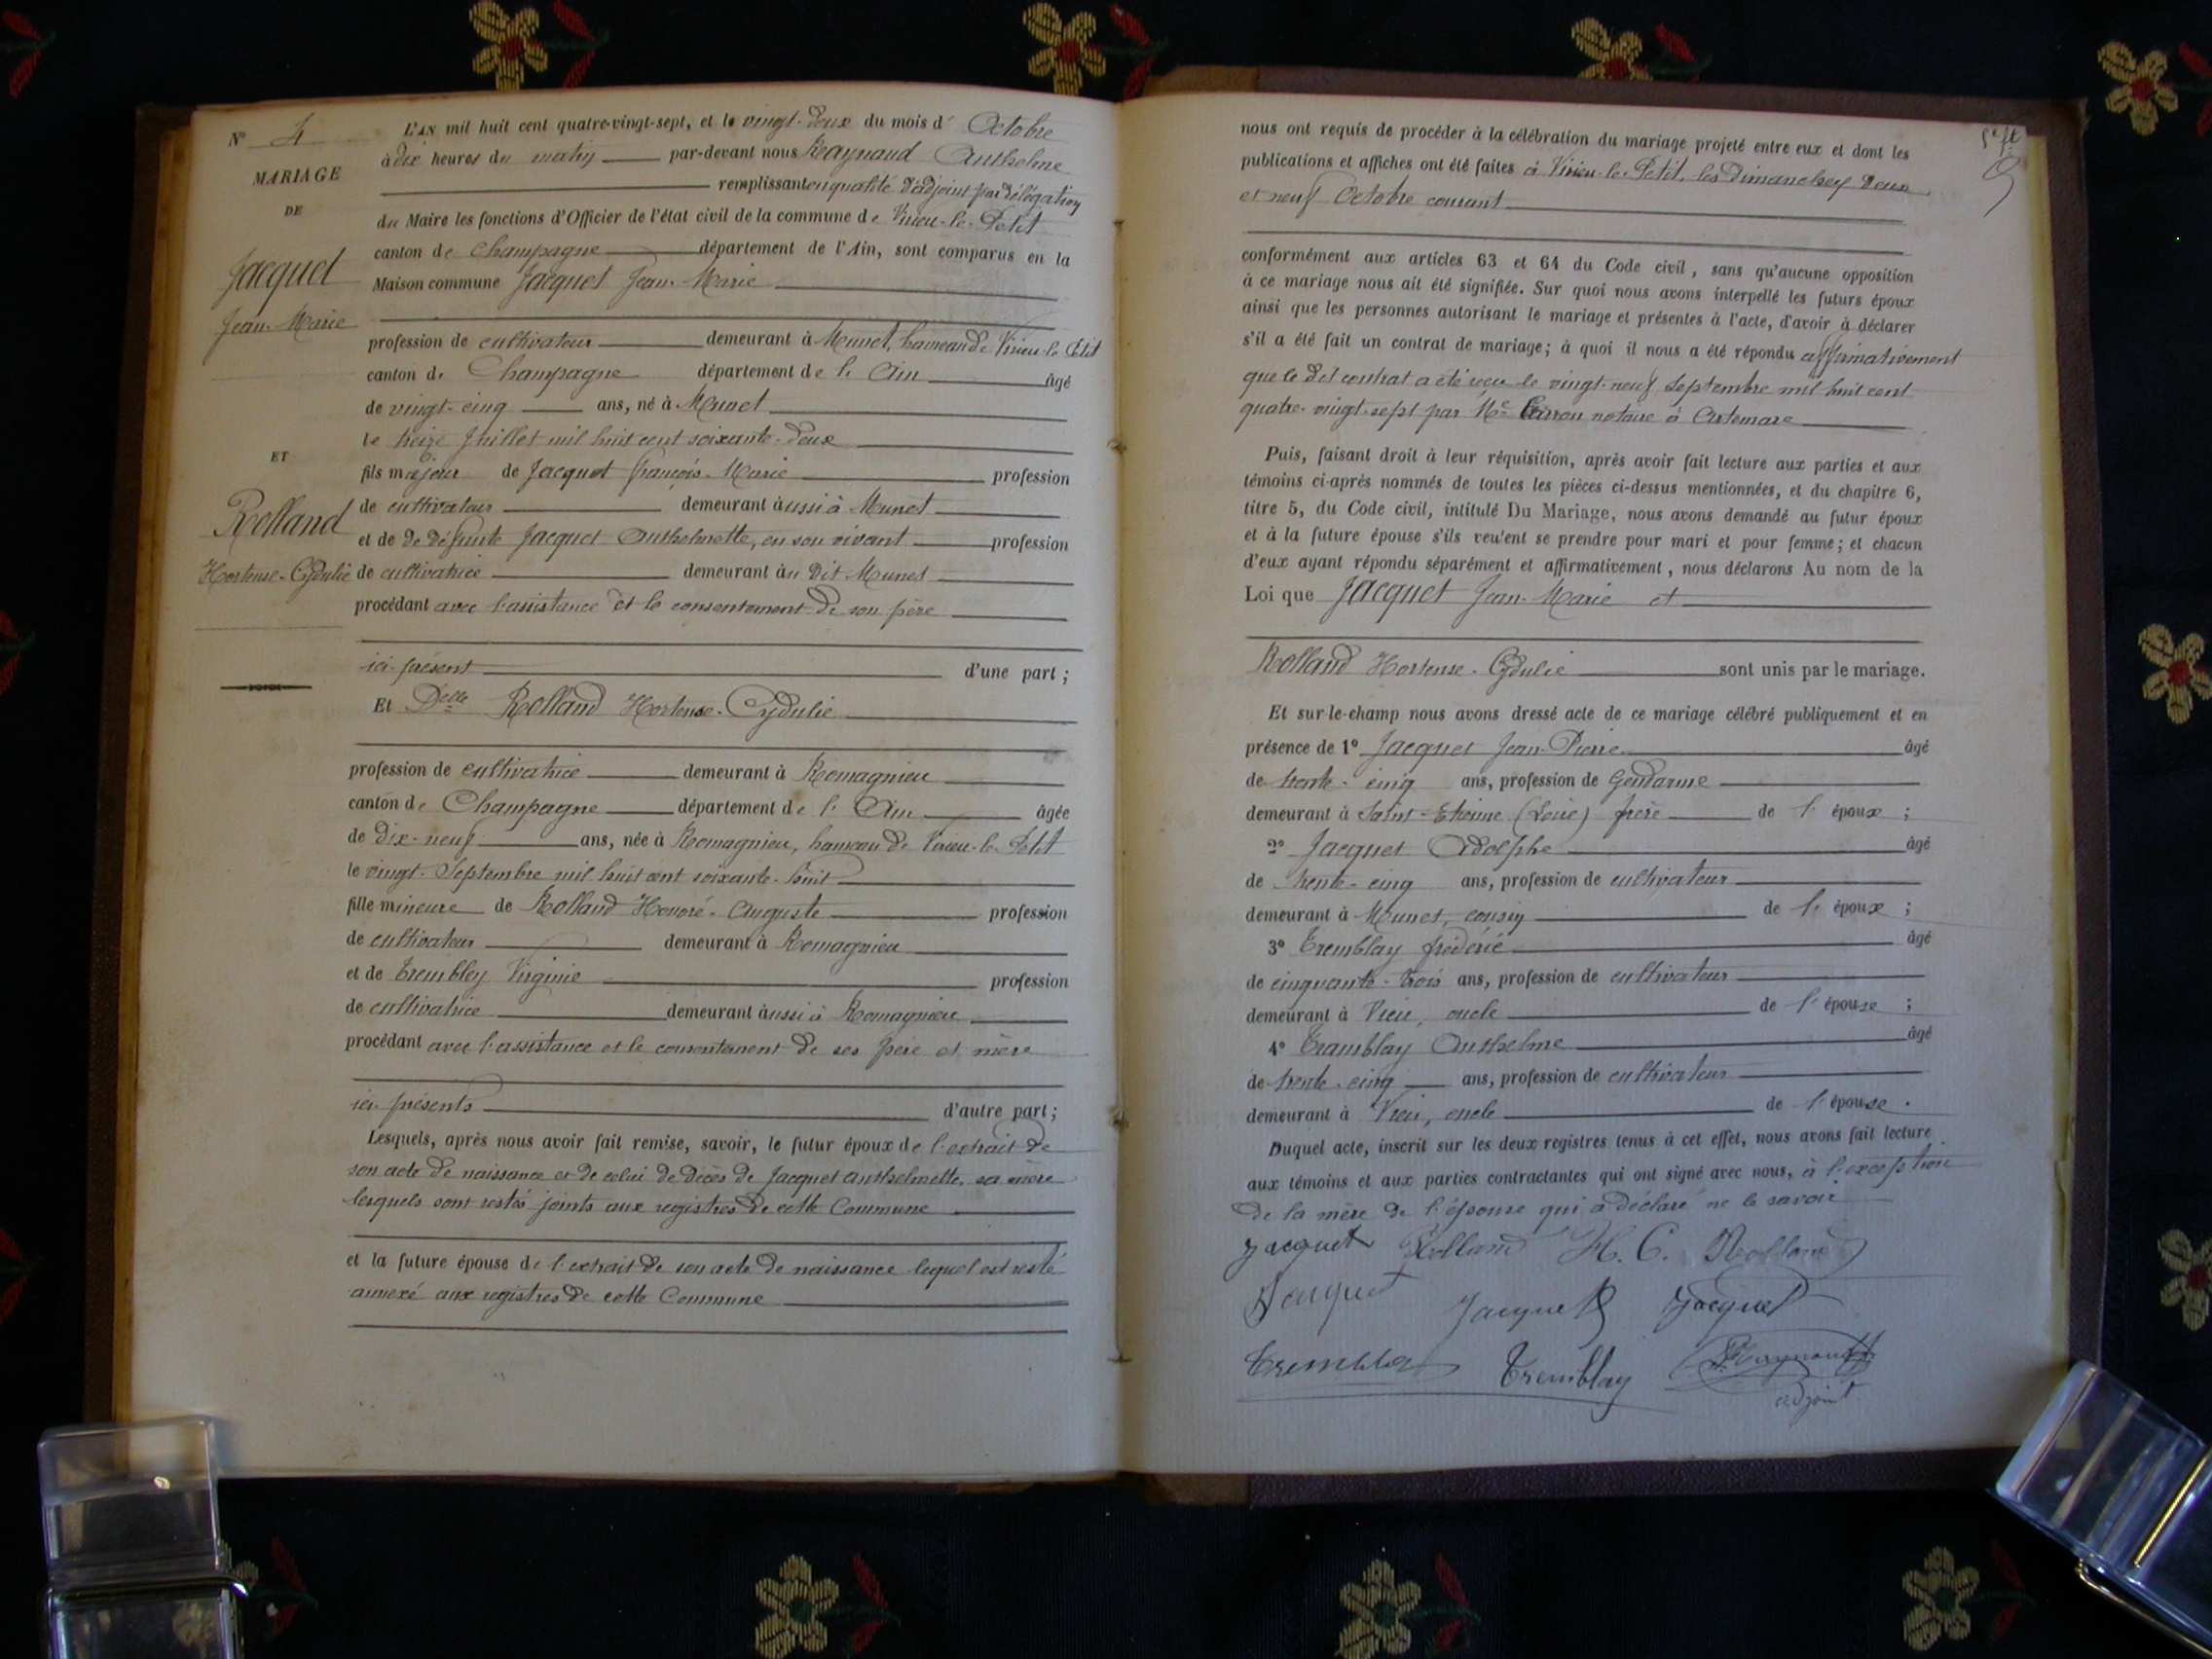 N° 4
MARIAGE
DE
Jacquet
Jean-Marie
ET
Rolland
Hortense-Cydulie
L'AN mil huit cent quatre-vingt-sept, et le vingt-deux du mois d' Octobre
à dix heures du matin par-devant nous Raynaud Anthelme
remplissant en qualité d'adjoint par délégation
du Maire les fonctions d'Officier de l'état civil de la commune de Virieu-le-Petit
canton de Champagne département de l'Ain, sont comparus en la
Maison commune Jacquet Jean-Marie
profession de cultivateur demeurant à Munet, hameau de Virieu-le-Petit
canton de Champagne département de l'Ain âgé
de vingt-cinq ans, né à Munet
le treize Juillet mil huit cent soixante-deux
fils majeur de Jacquet François-Marie profession
de cultivateur demeurant aussi à Munet
et de de défunte Jacquet Anthelmette, en son vivant profession
de cultivatrice demeurant au dit Munet
procédant avec l'assistance et le consentement de son père
ici présent d'une part ;
Et Delle Rolland Hortense-Cydulie
profession de cultivatrice demeurant à Romagnieu
canton de Champagne département de l'Ain âgée
de dix-neuf ans, née à Romagnieu, hameau de Virieu-le-Petit
le vingt Septembre mil huit cent soixante-huit
fille mineure de Rolland Honoré-Auguste profession
de cultivateur demeurant à Romagnieu
et de Trembley Virginie profession
de cultivatrice demeurant aussi à Romagnieu
procédant avec l'assistance et le consentement de ses père et mère
ici présents d'autre part ;
Lesquels, après nous avoir fait remise, savoir, le futur époux de l'extrait de
son acte de naissance et de celui de décès de Jacquet Anthelmette, sa mère
lesquels sont restés joints aux registres de cette Commune
et la future épouse de l'extrait de son acte de naissance lequel est resté
annexé aux registres de cette Commune
nous ont requis de procéder à la célébration du mariage projeté entre eux et dont les
publications et affiches ont été faites à Virieu-le-Petit, les Dimanches deux
et neuf Octobre courant
conformément aux articles 63 et 64 du Code civil, sans qu'aucune opposition
à ce mariage nous ait été signifiée. Sur quoi nous avons interpellé les futurs époux
ainsi que les personnes autorisant le mariage et présentes à l'acte, d'avoir à déclarer
s'il a été fait un contrat de mariage ; à quoi il nous a été répondu affirmativement
que le dit contrat a été reçu le vingt-neuf Septembre mil huit cent
quatre-vingt-sept par Me notaire à Artemare
Puis, faisant droit à leur réquisition, après avoir fait lecture aux parties et aux
témoins ci-après nommés de toutes les pièces ci-dessus mentionnées, et du chapitre 6,
titre 5, du Code civil, intitulé Du Mariage, nous avons demandé au futur époux
et à la future épouse s'ils veulent se prendre pour mari et pour femme ; et chacun
d'eux ayant répondu séparément et affirmativement, nous déclarons Au nom de la
Loi que Jacquet Jean-Marie et
Rolland Hortense-Cydulie sont unis par le mariage.
Et sur-le-champ nous avons dressé acte de ce mariage célébré publiquement et en
présence de 1° Jacquet Jean-Pierre âgé
de trente-cinq ans, profession de Gendarme
demeurant à Saint-Etienne (Loire) frère de l'époux ;
2° Jacquet Adolphe âgé
de trente-cinq ans, profession de cultivateur
demeurant à Munet, cousin de l'époux ;
3° Tremblay fréderic âgé
de cinquante-trois ans, profession de cultivateur
demeurant à Vieu, oncle de l'épouse ;
4° Tramblay Anthelme âgé
de trente-cinq ans, profession de cultivateur
demeurant à Vieu, oncle de l'épouse.
Duquel acte, inscrit sur les deux registres tenus à cet effet, nous avons fait lecture
aux témoins et aux parties contractantes qui ont signé avec nous, à l'exception
de la mère de l'épouse qui a déclaré ne le savoir
Jacquet Rolland H. C. Rolland
Jacquet Jacquet Jacquet
Tremblay Tremblay Raynaud
adjoint